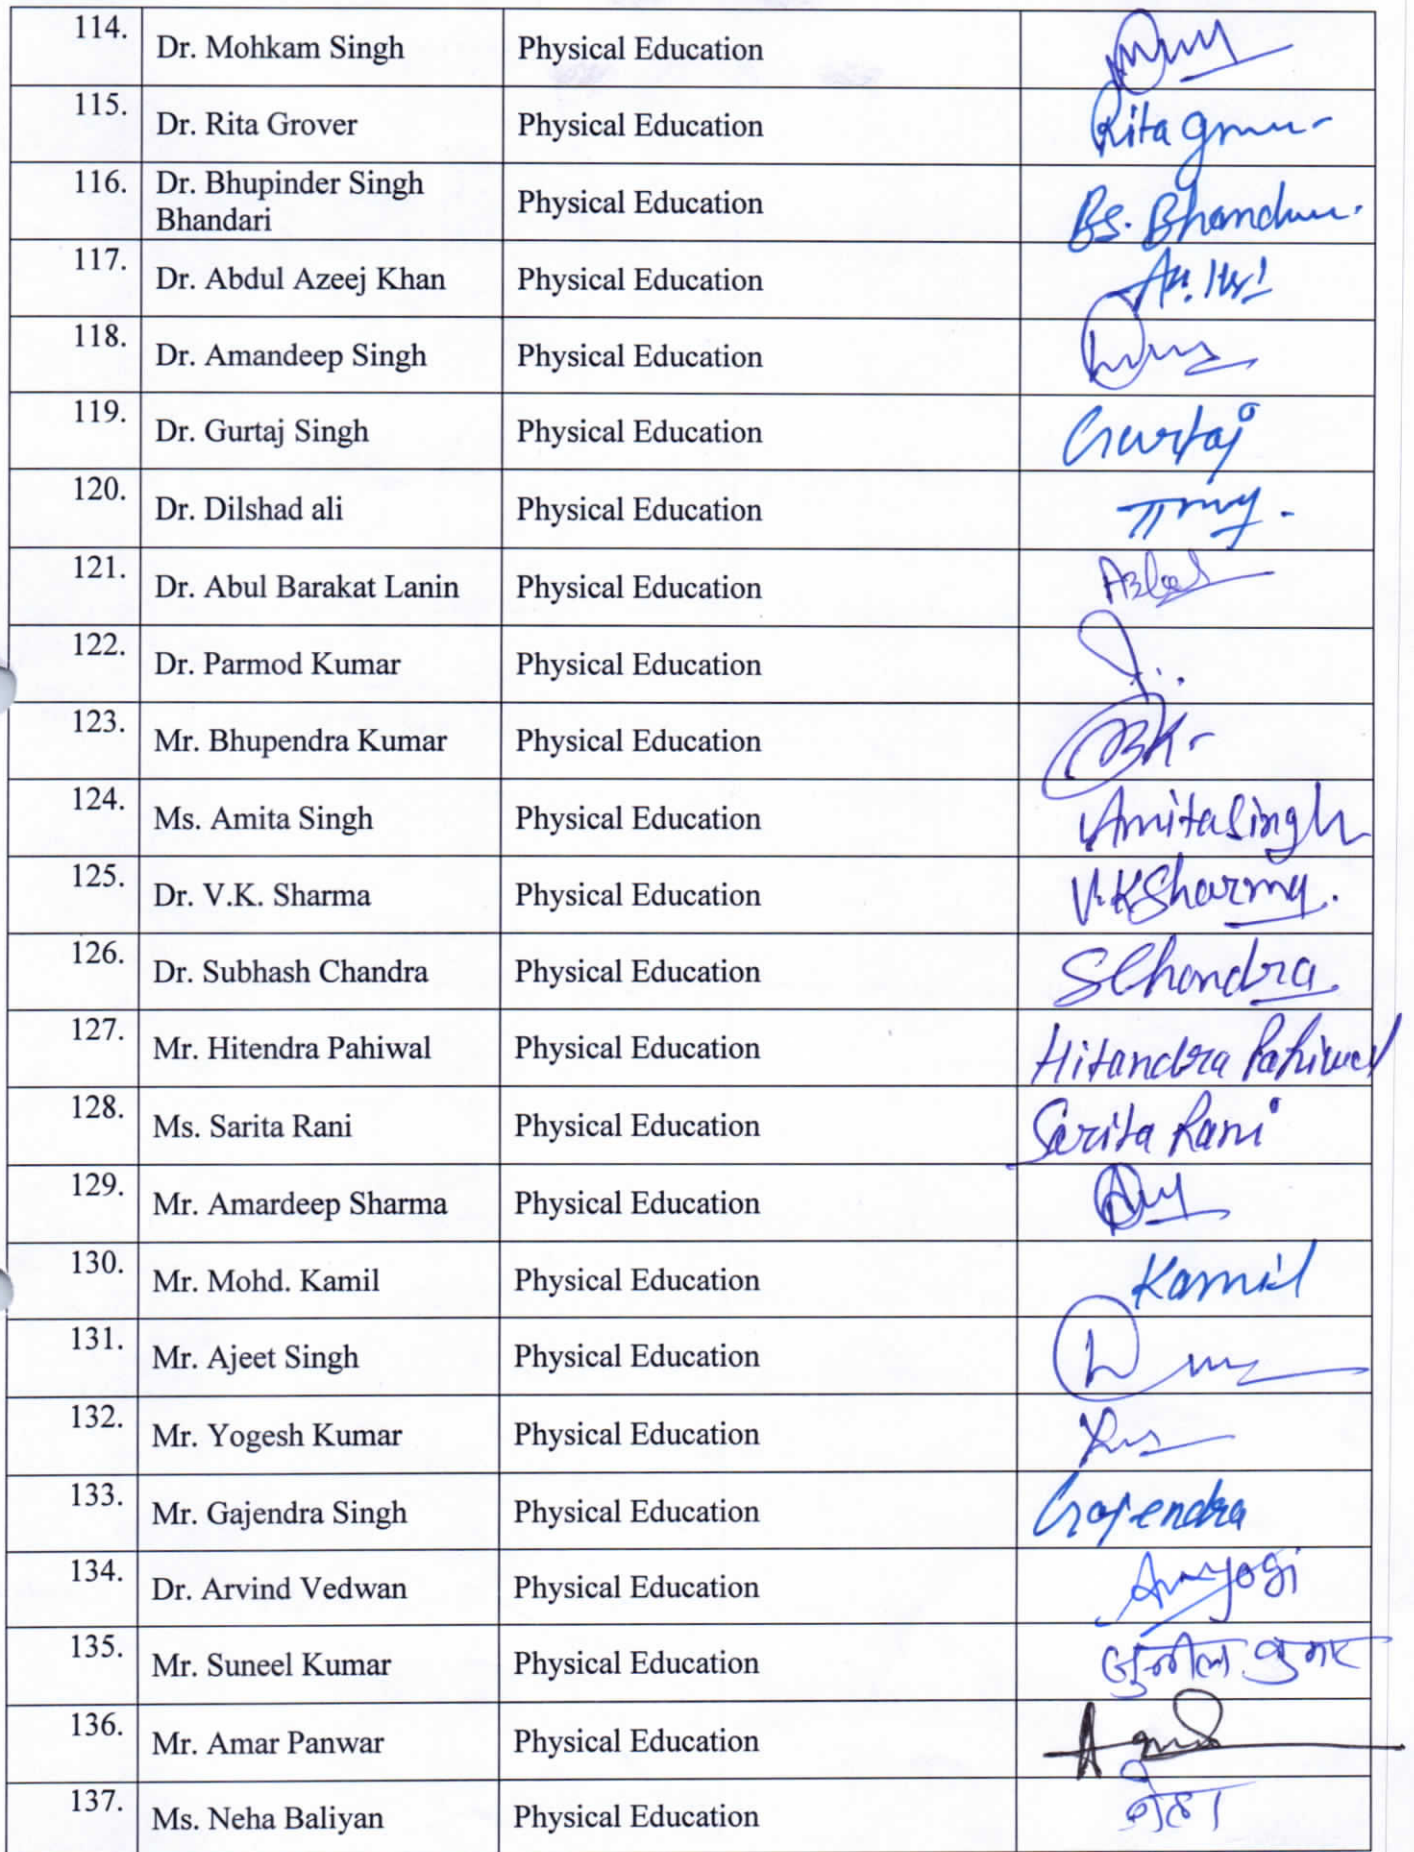 114. Dr. Mohkam Singh Physical Education
115. Dr. Rita Grover Physical Education Rita
116. Dr. Bhupinder Singh Physical Education BS. Bhandari
Bhandari
117. Dr. Abdul Azeej Khan Physical Education
118. Dr. Amandeep Singh Physical Education
119. Dr. Gurtaj Singh Physical Education Gurtaj
120. Dr. Dilshad ali Physical Education
121. Dr. Abul Barakat Lanin Physical Education
122. Dr. Parmod Kumar Physical Education
123. Mr. Bhupendra Kumar Physical Education BK
124. Ms. Amita Singh Physical Education Amita Singh
125. Dr. V.K. Sharma Physical Education V.K Sharma.
126. Dr. Subhash Chandra Physical Education SChandra
127. Mr. Hitendra Pahiwal Physical Education Hitandra Pahiwal
128. Ms. Sarita Rani Physical Education Sarita Rani
129. Mr. Amardeep Sharma Physical Education
130. Mr. Mohd. Kamil Physical Education Kamil
131. Mr. Ajeet Singh Physical Education
132. Mr. Yogesh Kumar Physical Education
133. Mr. Gajendra Singh Physical Education Gajendra
134. Dr. Arvind Vedwan Physical Education
135. Mr. Suneel Kumar Physical Education सुनील कुमार
136. Mr. Amar Panwar Physical Education
137. Ms. Neha Baliyan Physical Education नेहा